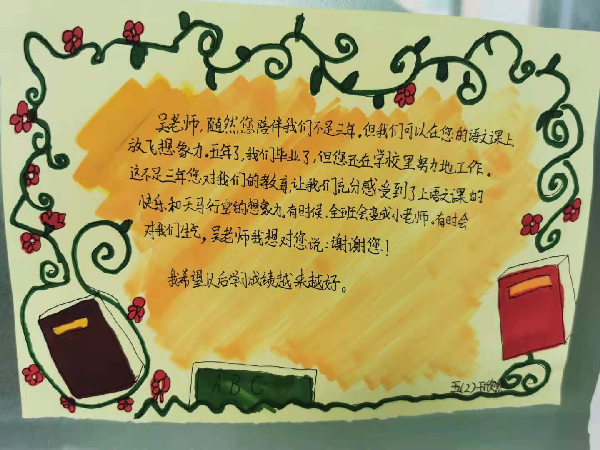 吴老师，随然您陪伴我们不足三年，但我们可以在您的语文课上
放飞想象力。五年了，我们毕业了，但您还在学校里努力地工作。
这不足三年您对我们的教育，让我们充分感受到了上语文课的
快乐和天马行空的想象力。有时候，全班会变成小老师。有时会
对我们生气，吴老师我想对您说：谢谢您！
我希望以后学习成绩越来越好。
ABC
五(2)